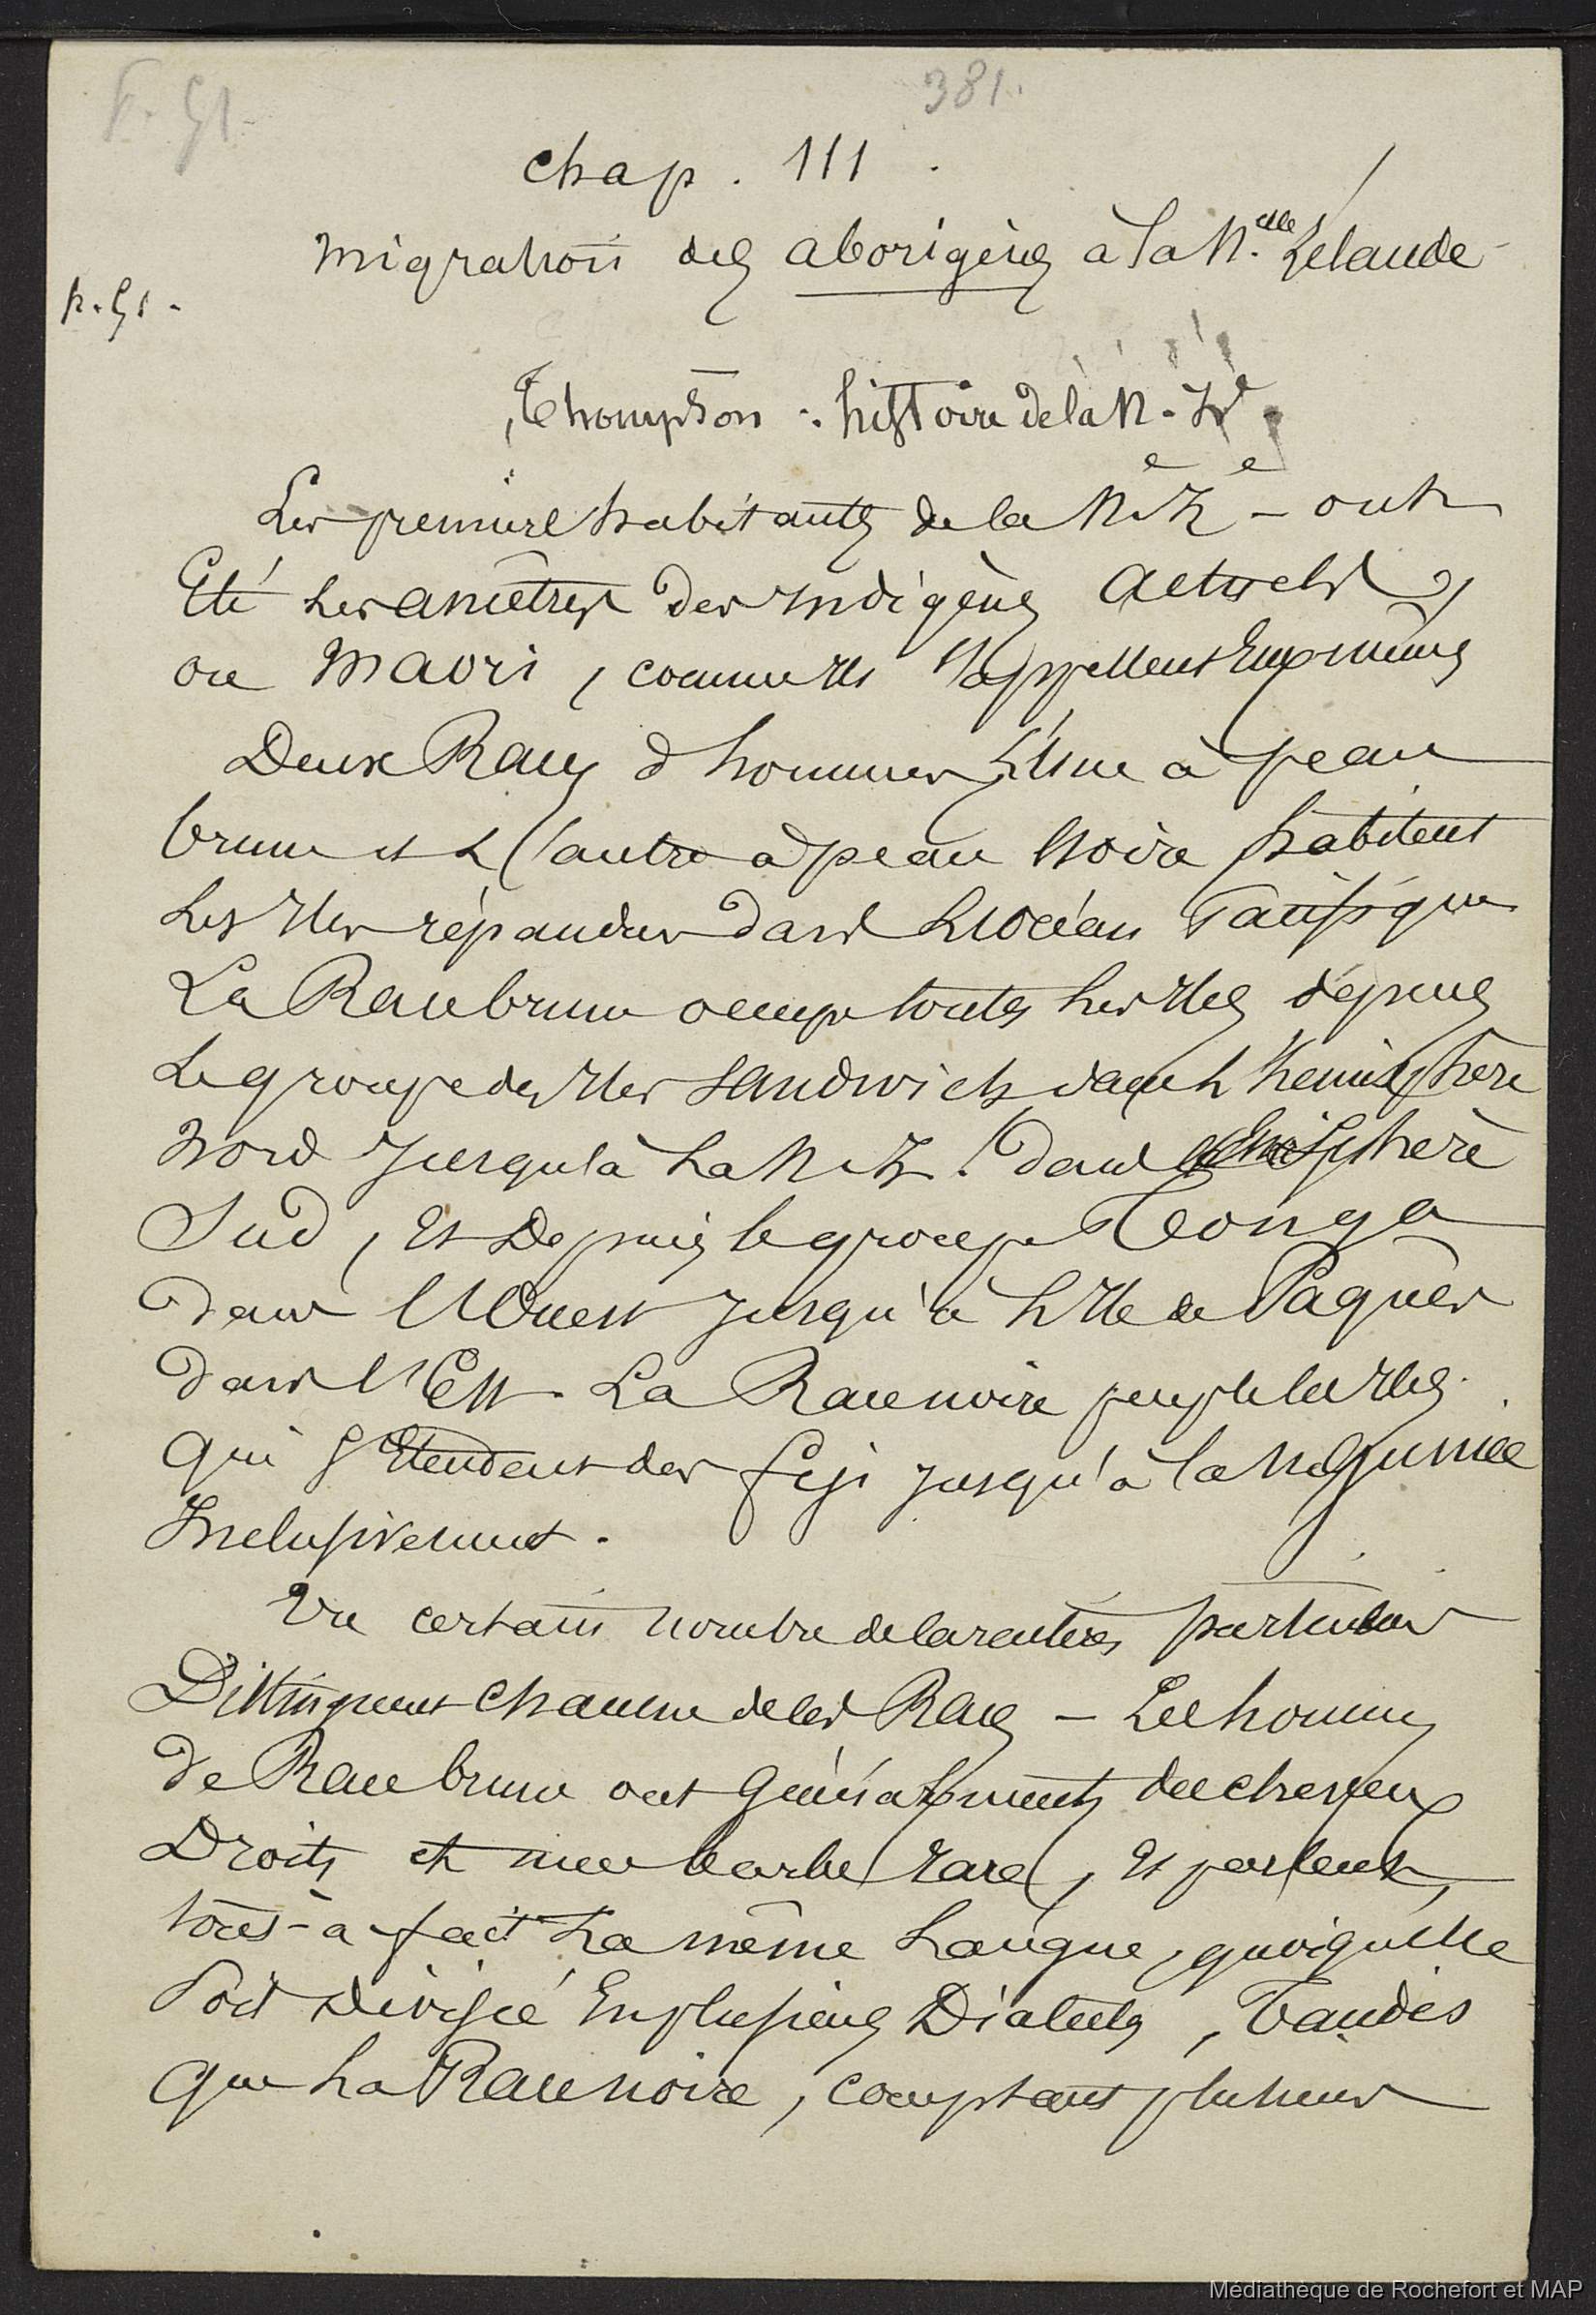 P. 51.
381.
chap. III.
migration des aborigènes à la N.elle Zélande
p. 51.
Thompson : histoire de la N. Zde
Les premiers habitants de la Ne Ze - ont
Eté les ancêtres des Indigènes actuels,
ou Maori, comme Ils s'appellent Eux mêmes
Deux Races d'hommes, l'Une à peau
brune et l'autre à peau Noire habitent
les Iles répandues dans l'Océan Pacifique
La Race brune occupe toutes les Iles depuis
le groupe des Iles Sandwich dans l'hemisphère
Nord Jusqu'à la N. Z. dans l'hémisphère
Sud, Et Depuis le groupe Tonga
dans l'Ouest Jusqu'à l'Ile de Paques
dans l'Est. La Race noire peuple les Iles
qui s'Etendent des Fiji jusqu'à la Nlle Guinée
Inclusivement.
Un certain nombre de caractères particuliers
Distinguent chacune de ces Races - Les hommes
de Race brune ont Généralement des cheveux
Droits et une barbe rare, Et parlent
tout-à-fait la même langue, quoiqu'elle
soit divisée En plusieurs Dialectes, Tandis
que la Race noire, comptant plusieurs
Médiathèque de Rochefort et MAP